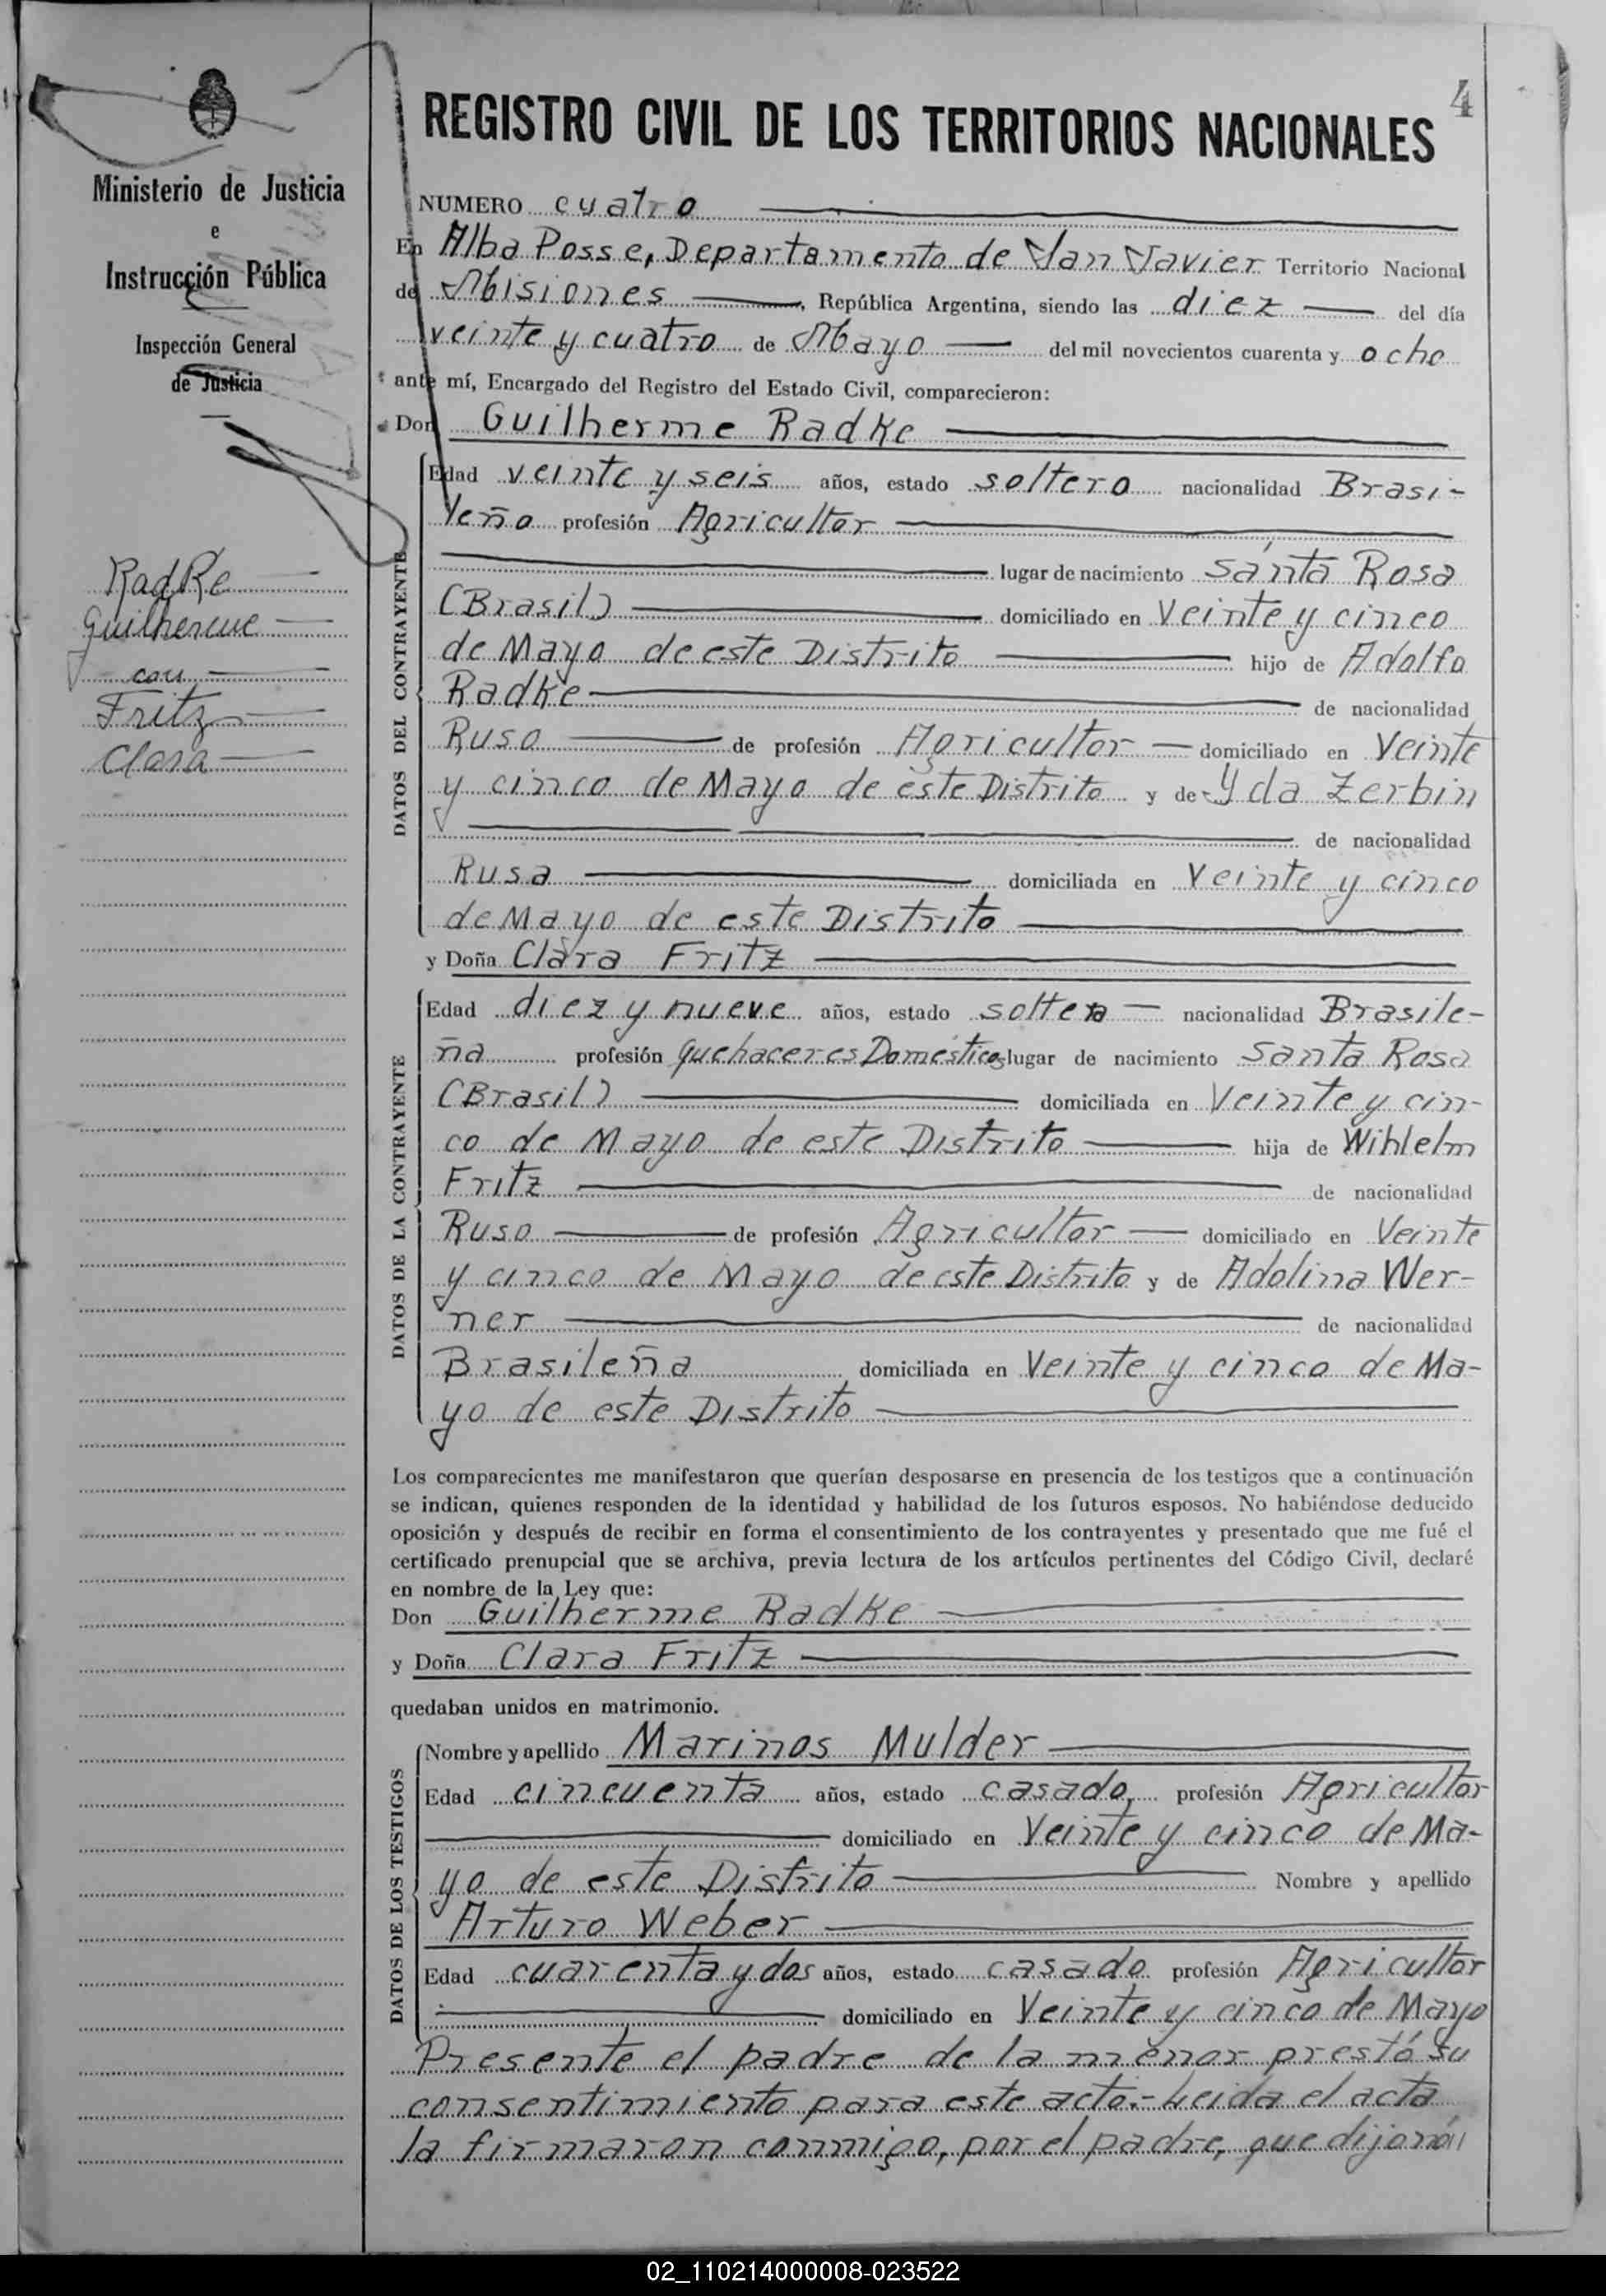 4
REGISTRO CIVIL DE LOS TERRITORIOS NACIONALES
Ministerio de Justicia
e
Instrucción Pública
Inspección General
de Justicia
Radke
Guilherme
con
Fritz
Clara
NUMERO cuatro
En Alba Posse, Departamento de San Javier Territorio Nacional
de Misiones, República Argentina, siendo las diez del día
veinte y cuatro de Mayo del mil novecientos cuarenta y ocho
ante mí, Encargado del Registro del Estado Civil, comparecieron:
Don Guilherme Radke
DATOS DEL CONTRAYENTE
Edad veinte y seis años, estado soltero nacionalidad Brasi-
leño profesión Agricultor
lugar de nacimiento Santa Rosa
(Brasil) domiciliado en Veinte y cinco
de Mayo de este Distrito hijo de Adolfo
Radke de nacionalidad
Ruso de profesión Agricultor domiciliado en Veinte
y cinco de Mayo de este Distrito y de Yda Zerbin
de nacionalidad
Rusa domiciliada en Veinte y cinco
de Mayo de este Distrito
y Doña Clara Fritz
DATOS DE LA CONTRAYENTE
Edad diez y nueve años, estado soltera nacionalidad Brasile-
ña profesión Quehaceres Domésticos lugar de nacimiento Santa Rosa
(Brasil) domiciliada en Veinte y cin-
co de Mayo de este Distrito hija de Wihlelm
Fritz de nacionalidad
Ruso de profesión Agricultor domiciliado en Veinte
y cinco de Mayo de este Distrito y de Adolina Wer-
ner de nacionalidad
Brasileña domiciliada en Veinte y cinco de Ma-
yo de este Distrito
Los comparecientes me manifestaron que querían desposarse en presencia de los testigos que a continuación
se indican, quienes responden de la identidad y habilidad de los futuros esposos. No habiéndose deducido
oposición y después de recibir en forma el consentimiento de los contrayentes y presentado que me fué el
certificado prenupcial que se archiva, previa lectura de los artículos pertinentes del Código Civil, declaré
en nombre de la Ley que:
Don Guilherme Radke
y Doña Clara Fritz
quedaban unidos en matrimonio.
DATOS DE LOS TESTIGOS
Nombre y apellido Marinos Mulder
Edad cincuenta años, estado casado, profesión Agricultor
domiciliado en Veinte y cinco de Ma-
yo de este Distrito Nombre y apellido
Arturo Weber
Edad cuarenta y dos años, estado casado profesión Agricultor
domiciliado en Veinte y cinco de Mayo
Presente el padre de la menor prestó su
consentimiento para este acto.- Leida el acta
la firmaron conmigo, por el padre, que dijo no
02_110214000008-023522